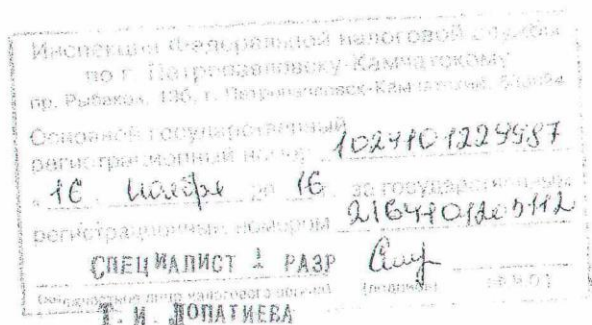 Инспекция Федеральной налоговой службы
по г. Петропавловску-Камчатскому
пр. Рыбаков, 13б, г. Петропавловск-Камчатский, 683024
Основной государственный
регистрационный номер 1024101224987
"16" ноября 2016 за государственным
регистрационным номером 2164101205112
СПЕЦИАЛИСТ 1 РАЗР
(должностное лицо налогового органа) (подпись) (Ф.И.О.)
Т. И. ЛОПАТИЕВА